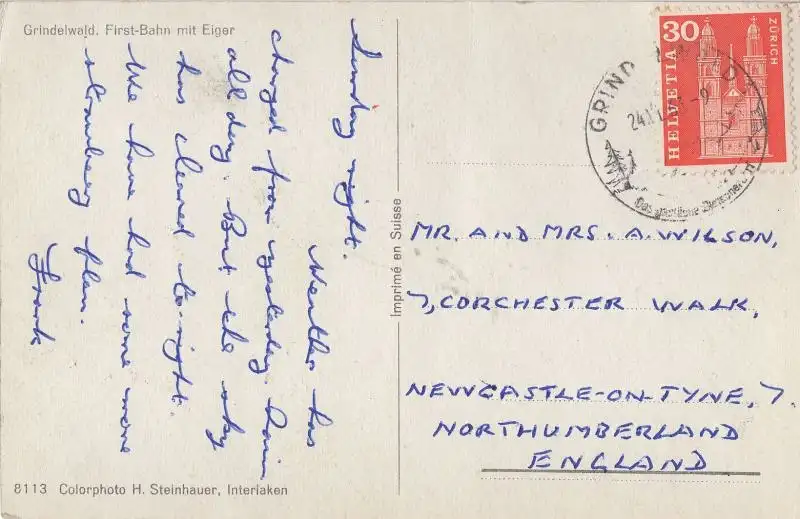 Grindelwald. First-Bahn mit Eiger
Sunday night.
Weather has
changed from yesterday. Rain
all day. But the sky
has cleared to-night.
We have had some more
strawberry flan.
Frank
8113 Colorphoto H. Steinhauer, Interlaken
Imprimé en Suisse
30
HELVETIA
ZÜRICH
GRIND
MR. AND MRS. A. WILSON,
7, CORCHESTER WALK,
NEWCASTLE-ON-TYNE, 7.
NORTHUMBERLAND
ENGLAND